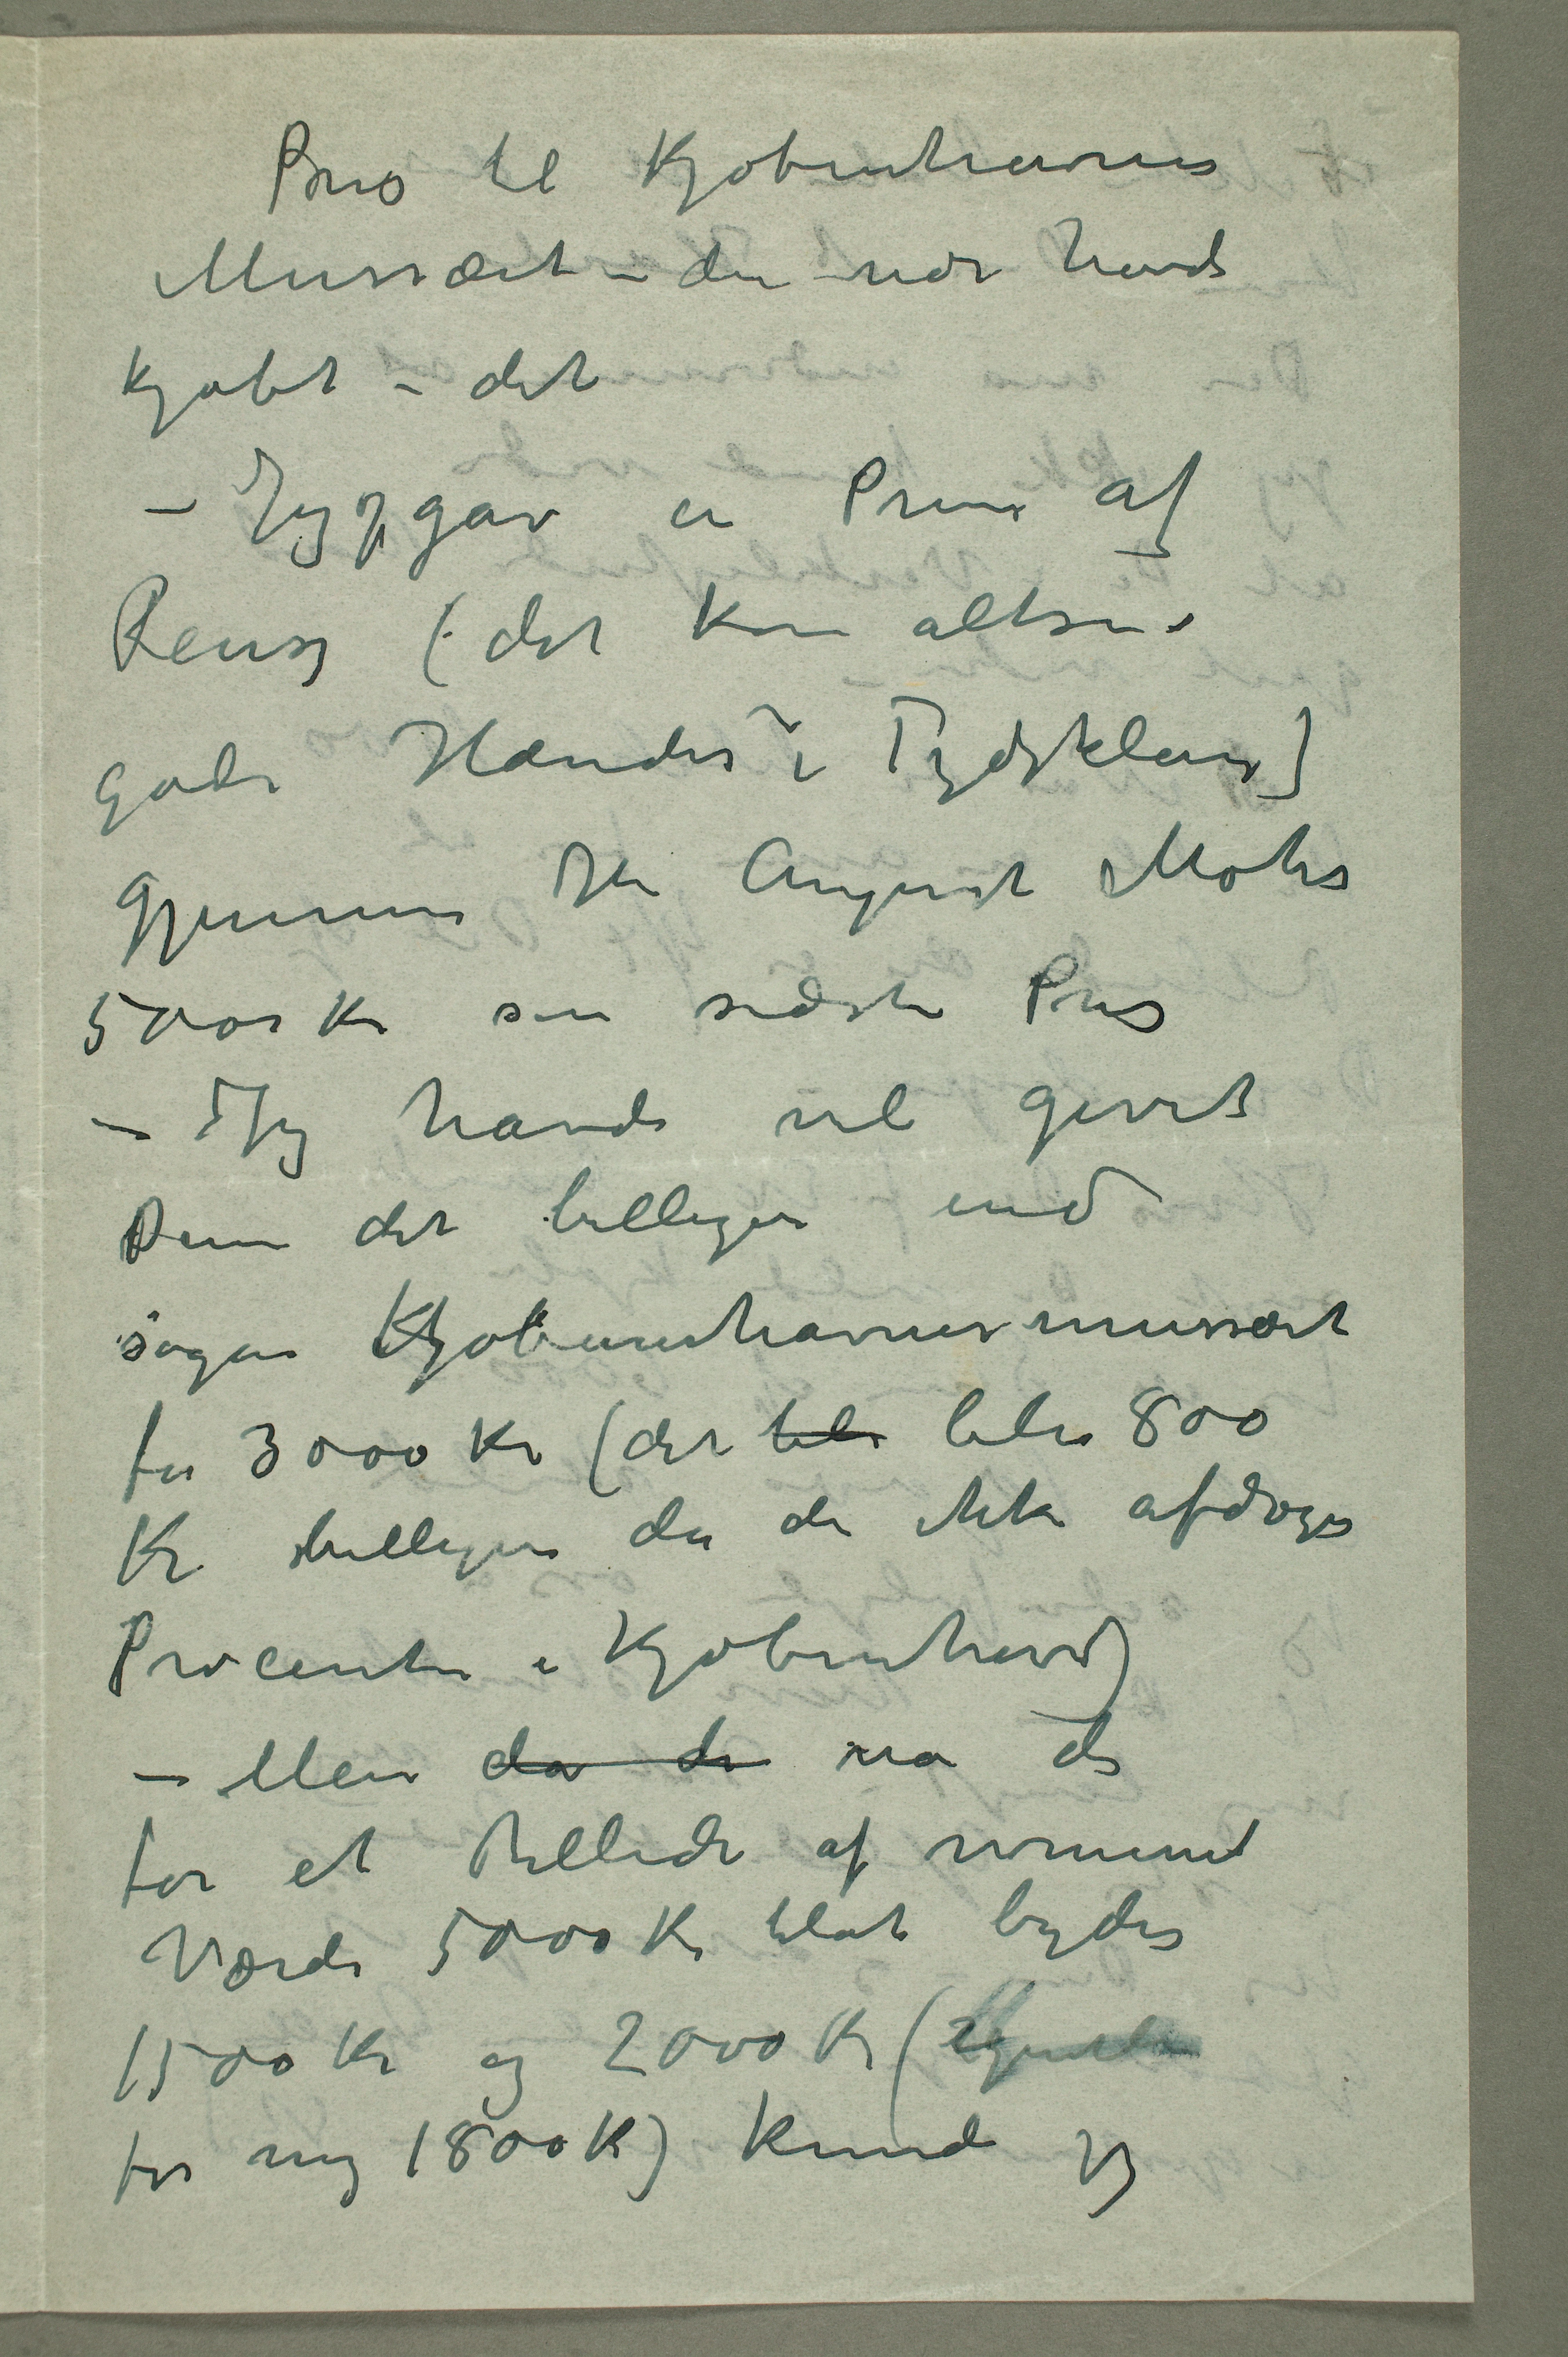 Pris til Kjøbenhavns
Musæet – der nær havde
kjøbt – det
– Jeg gav en Pris af
(det kom altsaa i
gode Hænder i Tydskland)
gjennem Hr August Mohr
5000 Kr som sidste Pris
– Jeg havde vel givet
Dem det billigere end
sogar Kjøbenhavnermusæet
for 3000 Kr (det blir blir 800
Kr billigere da der ikke afdrages
Procenter i Kjøbenhavn)
– Men da der naar der
for et Billede af
Værdi 5000 Kr blot bydes
1500 Kr og 2000 Kr (egentlig
for mig 1800 K) kunde jeg